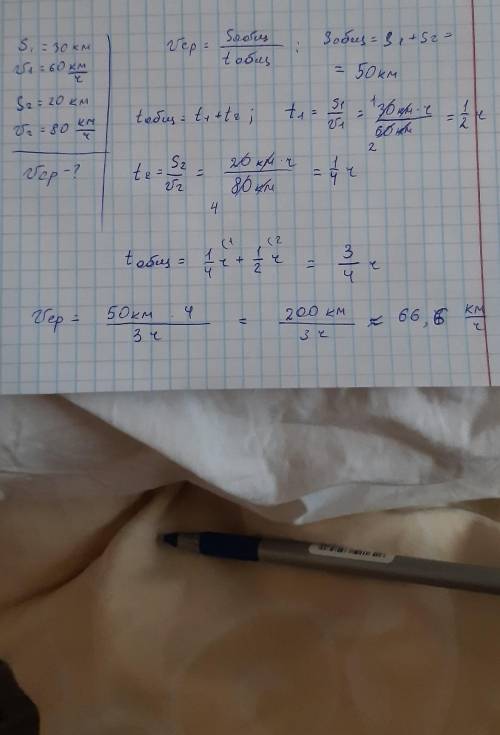 S₁ = 30 км
v₁ = 60 км/ч
S₂ = 20 км
v₂ = 80 км/ч
vср - ?
vср = Sобщ / tобщ ; Sобщ = S₁ + S₂ =
= 50 км
tобщ = t₁ + t₂ ; t₁ = S₁/v₁ = ¹30 км · ч / 60 км ₂ = 1/2 ч
t₂ = S₂/v₂ = 20 км · ч / 80 км ₄ = 1/4 ч
tобщ = 1/4 ч⁽¹ + 1/2 ч⁽² = 3/4 ч
vср = 50 км · 4 / 3 ч = 200 км / 3 ч ≈ 66,6 км/ч